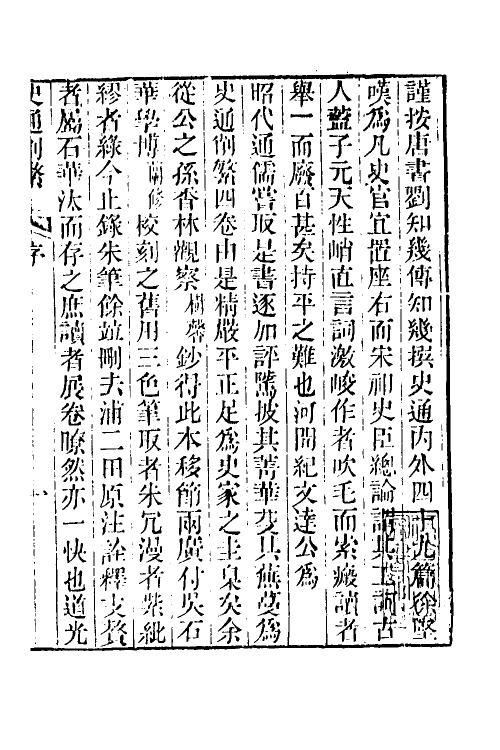 謹按唐書劉知幾傳知幾撰史通内外四十九篇徐堅
嘆為凡史官宜置座右而宋祁史臣總論謂其工訶古
人蓋子元天性峭直言詞激峻作者吹毛而索瘢讀者
舉一而廢百甚矣持平之難也河間紀文達公為
昭代通儒嘗取是書逐加評騭披其菁華芟其蕪蔓為
史通削繁四卷由是精嚴平正足為史家之圭臬矣余
從公之孫香林觀察樹馨鈔得此本移節兩廣付吳石
華學博蘭修校刻之舊用三色筆取者朱冗漫者紫紕
繆者綠今止錄朱筆餘竝刪去浦二田原注詮釋支贅
者屬石華汰而存之庶讀者展卷瞭然亦一快也道光
史通削繁 序 一